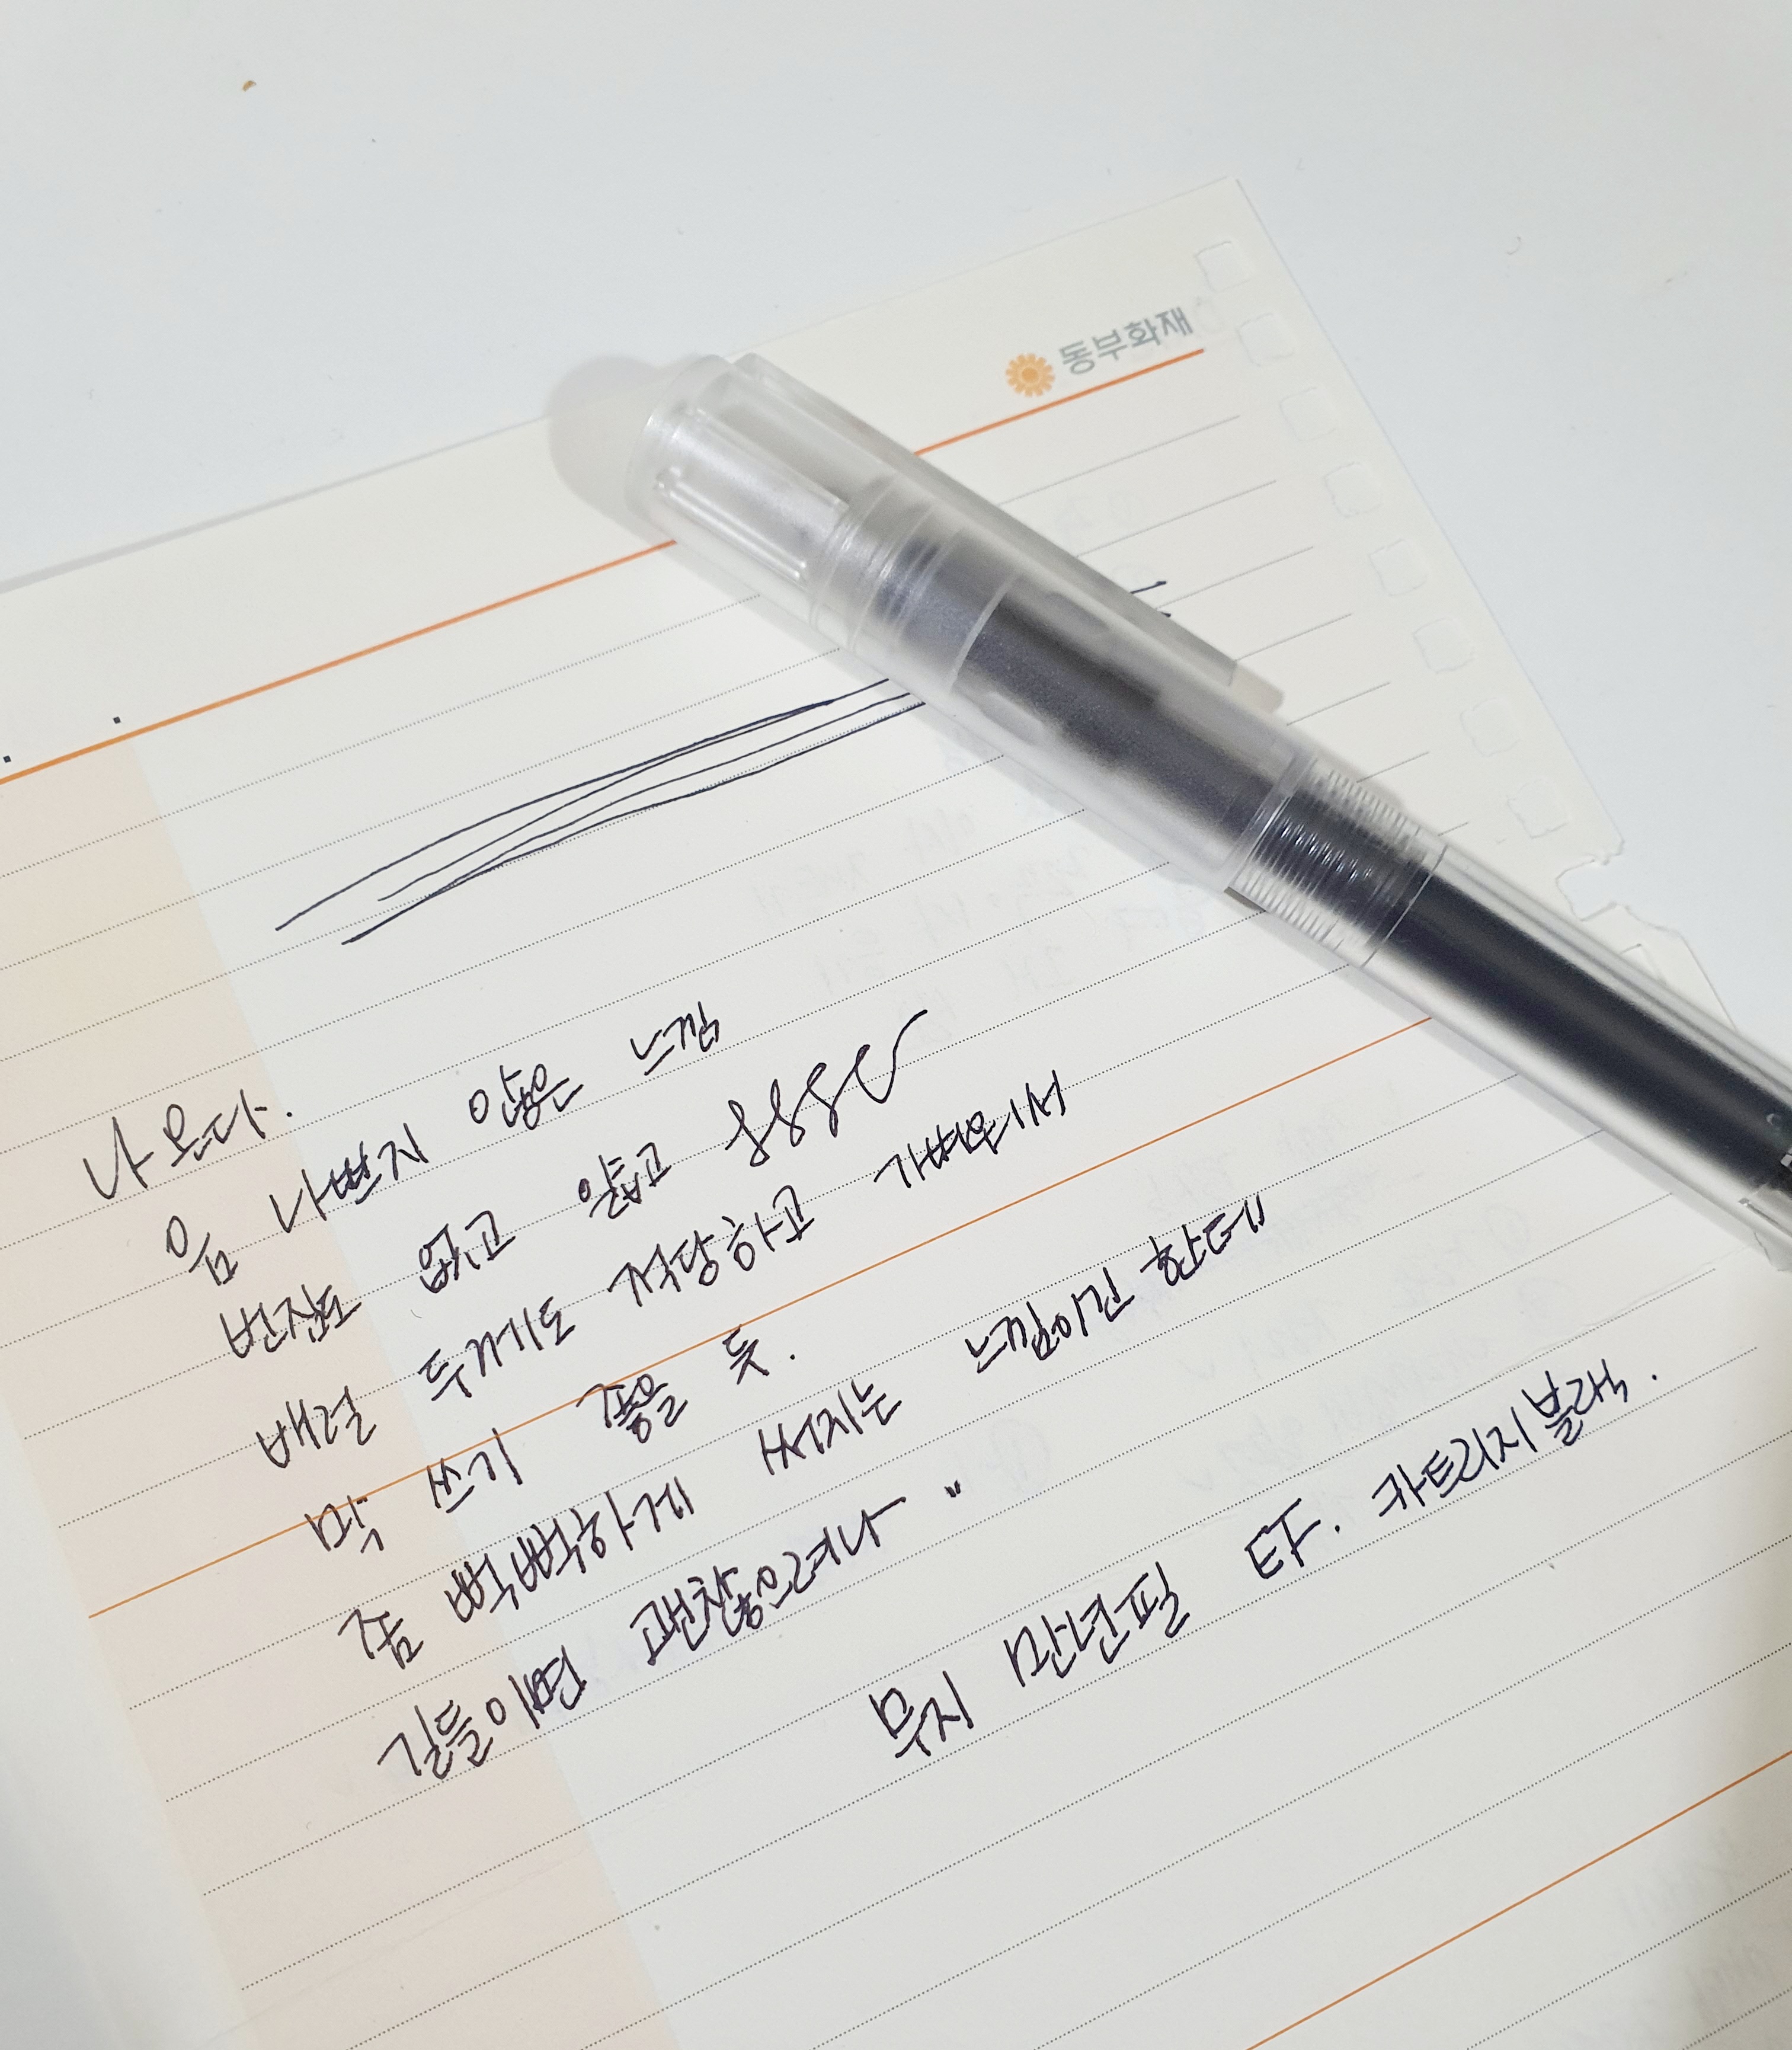 동부화재
나온다.
음 나쁘지 않은 느낌
번짐도 없고 얇고
배럴 두께도 적당하고 가벼워서
막 쓰기 좋을 듯.
좀 뻑뻑하게 써지는 느낌이긴 한데
길들이면 괜찮으려나 "
무지 만년필 EF. 카트리지 블랙.